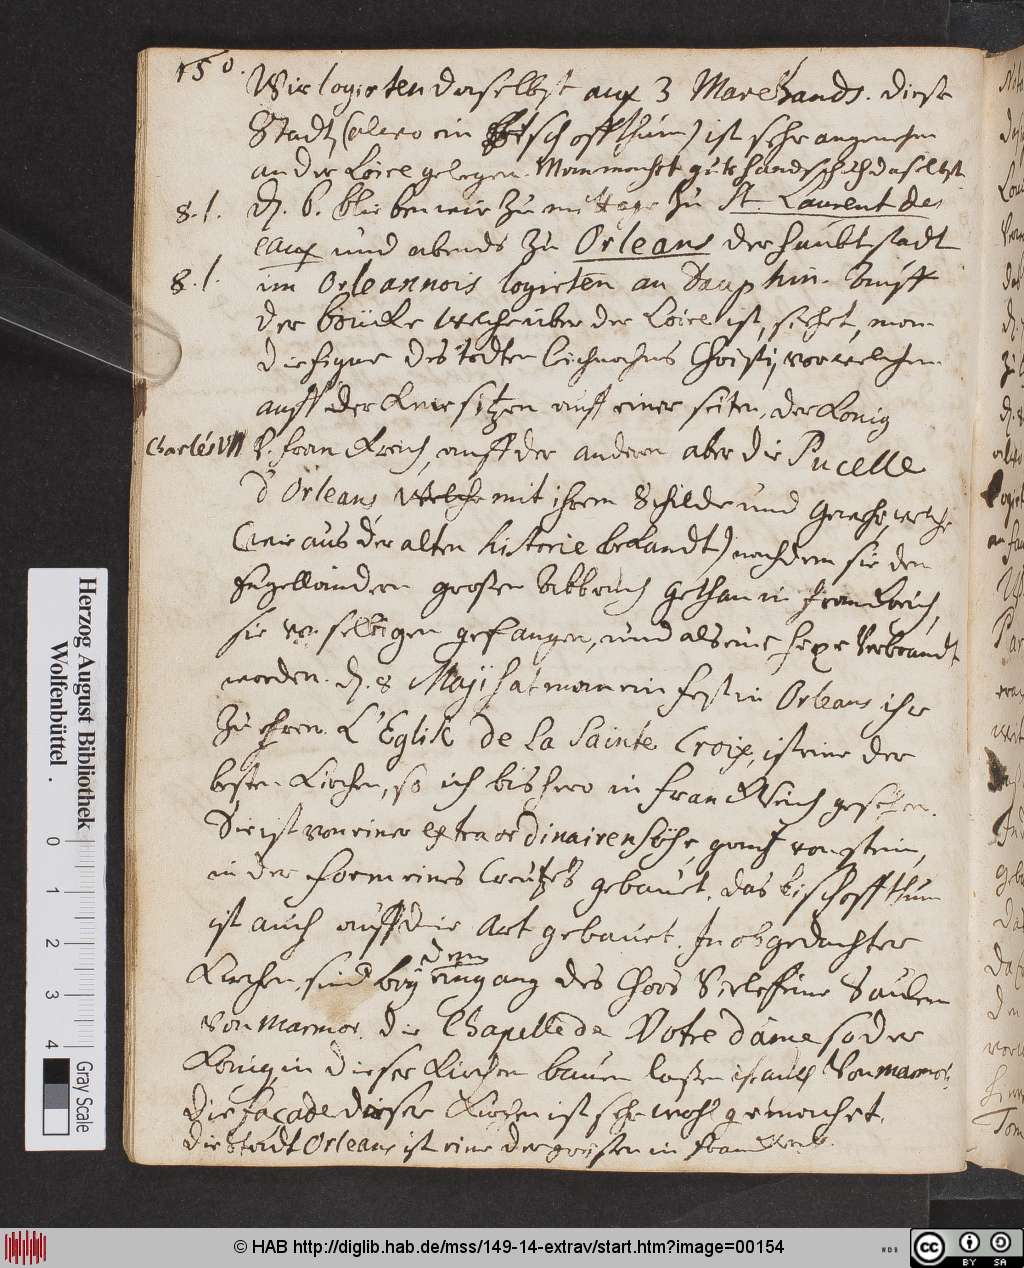 150.
Wir logirten daselbst aux 3 Marchands. Diese
Stadt (alwo ein Bischoffthum) ist sehr angenehm
an der Loire gelegen. Man machet gute handschuh daselbst.
8. l. D. 6. blieben wir zu mittage zu St. Laurent des
eaux und abends zu Orleans der haubtstadt
8. l. im Orleannois logirten au Dauphin. Auff
der brücke welche über der Loire ist, siehet man
die figur des todten leichnahms Christi, vor welchem
auff der Knie sitzen auff einer seiten, der König
Charles VII v. franckreich, auff der andern aber die Pucelle
d'Orleans, welche mit ihrem Schilde und gewehr, welche
(wie aus der alten historie bekandt) nachdem sie den
Engelländern großen Abbruch gethan in franckreich,
sie v. selbigen gefangen, und als eine hexe verbrandt
worden. D. 8 Maji hat man ein fest in Orleans ihr
zu ehren. L'Eglise de la Sainte Croix, ist eine der
besten Kirchen, so ich bishero in franckreich gesehen.
Die ist von einer extraordinairen höhe, gantz von stein,
in der form eines Creutzes gebauet. das bischoffthum
ist auch auff die art gebauet. In obgedachter
Kirchen, sind bey dem eingang des Chors viele feine Säulen
von marmor, die Chapelle de Notre dame so der
König in dieser Kirchen bauen laßen ist auch von marmor.
die façade dieser Kirchen ist sehr wohl gemachet.
die Stadt Orleans ist eine der grösten in franckreich.
Herzog August Bibliothek
Wolfenbüttel.
0 1 2 3 4
Gray Scale
© HAB http://diglib.hab.de/mss/149-14-extrav/start.htm?image=00154
WDB
cc BY SA